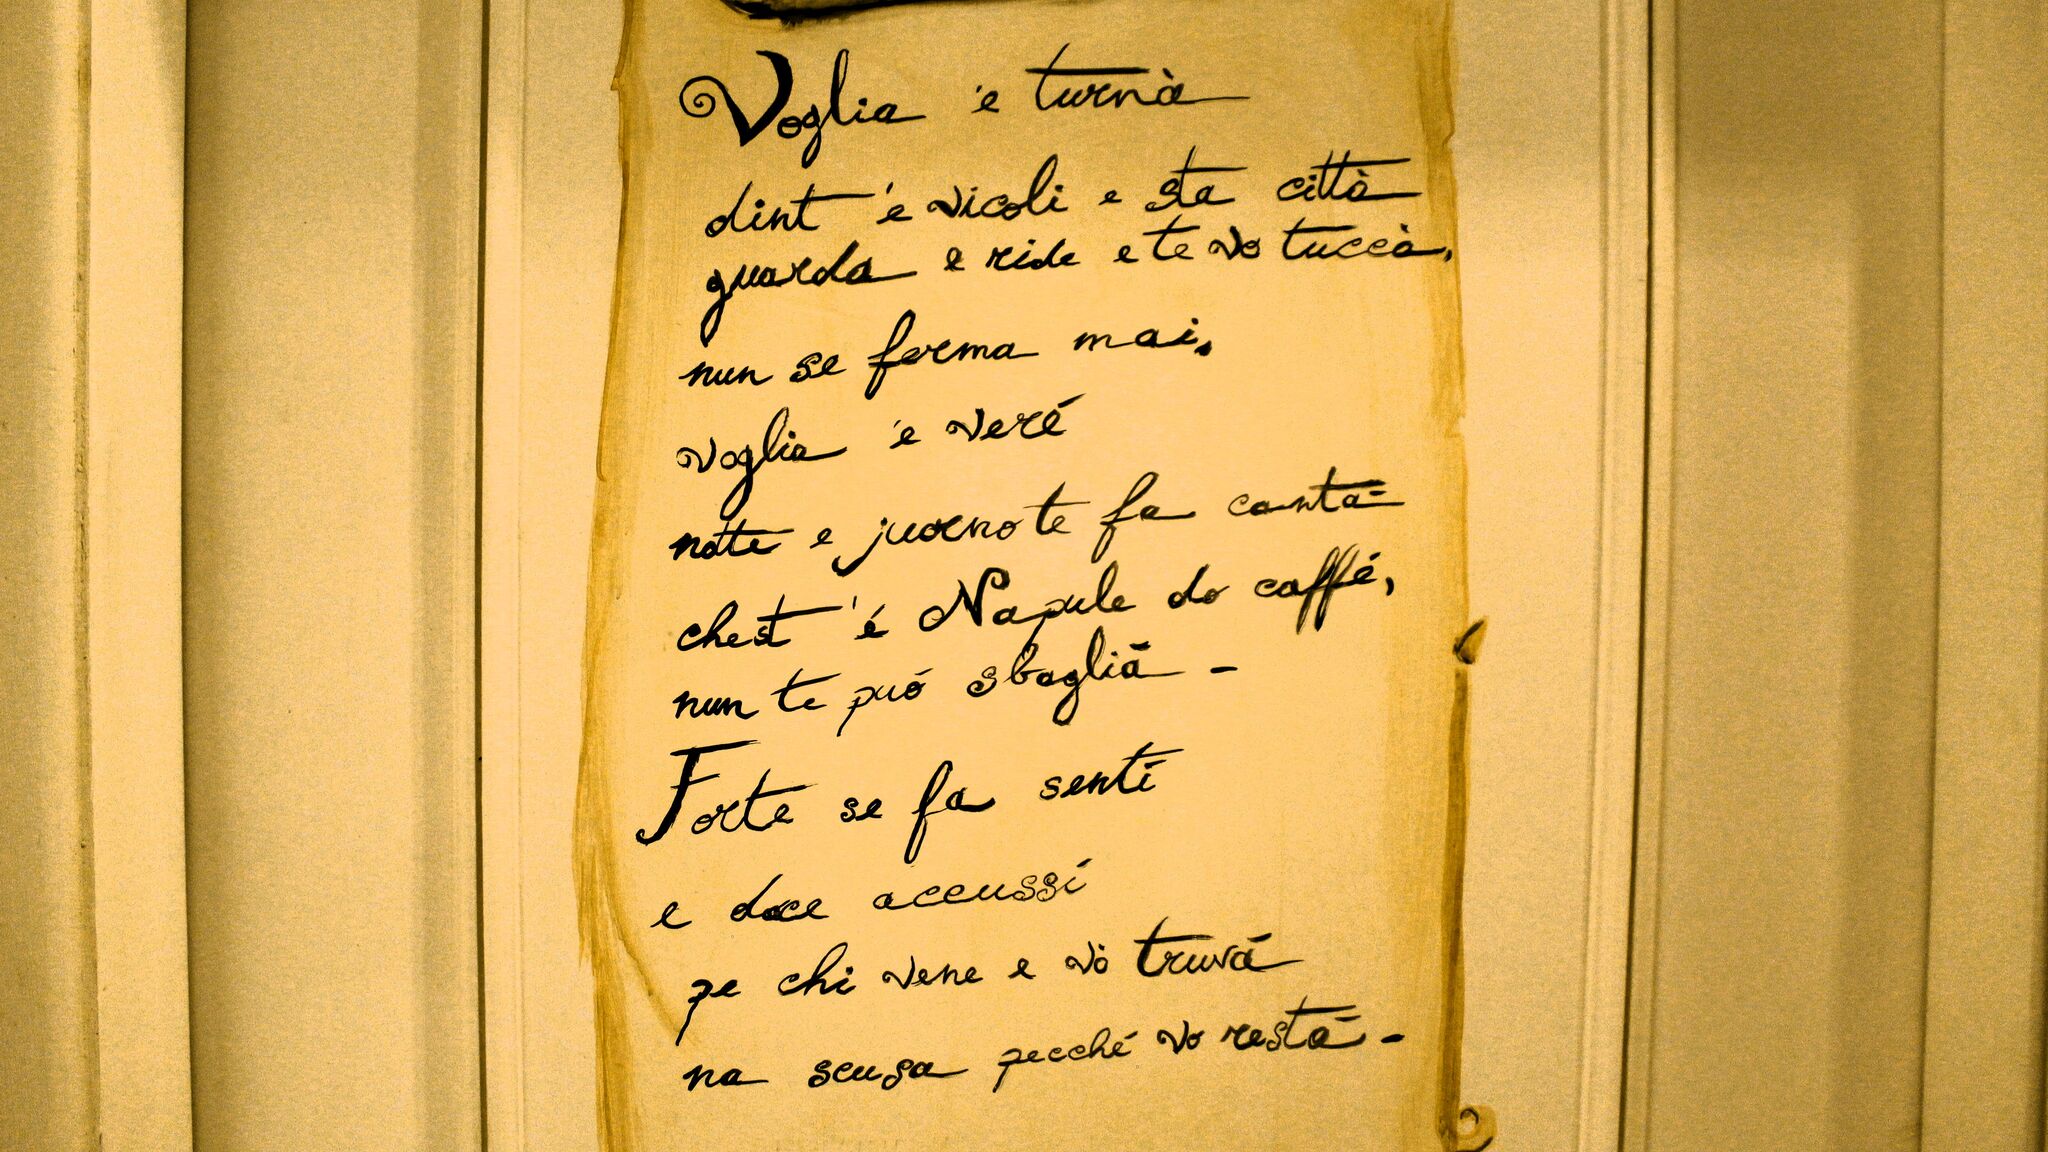 Voglia 'e turnà
dint 'e vicoli e sta città
guarda e ride e te vo tuccà,
nun se ferma mai.
voglia 'e veré
notte e juorno te fa cantà
chest 'é Napule do caffé,
nun te puó sbaglià -
Forte se fa sentí
e doce accussí
pe chi vene e vò truvá
na scusa pecché vo restà -